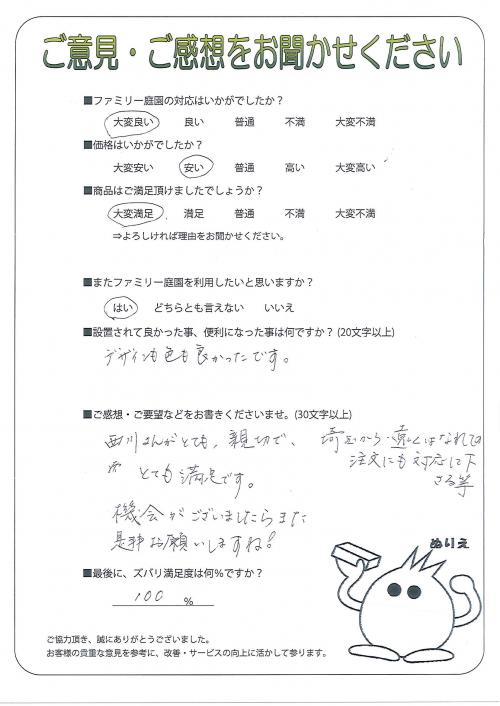 ご意見・ご感想をお聞かせください
■ファミリー庭園の対応はいかがでしたか?
大変良い 良い 普通 不満 大変不満
■価格はいかがでしたか?
大変安い 安い 普通 高い 大変高い
■商品はご満足頂けましたでしょうか?
大変満足 満足 普通 不満 大変不満
⇒よろしければ理由をお聞かせください。
■またファミリー庭園を利用したいと思いますか?
はい どちらとも言えない いいえ
■設置されて良かった事、便利になった事は何ですか?(20文字以上)
デザインも色も良かったです。
■ご感想・ご要望などをお書きくださいませ。(30文字以上)
西川さんがとても、親切で、
とても満足です。
埼玉から遠くはなれてる
注文にも対応して下
さる等
機会がございましたらまた
是非お願いしますね!
■最後に、ズバリ満足度は何%ですか?
100 %
ぬりえ
ご協力頂き、誠にありがとうございました。
お客様の貴重な意見を参考に、改善・サービスの向上に活かして参ります。